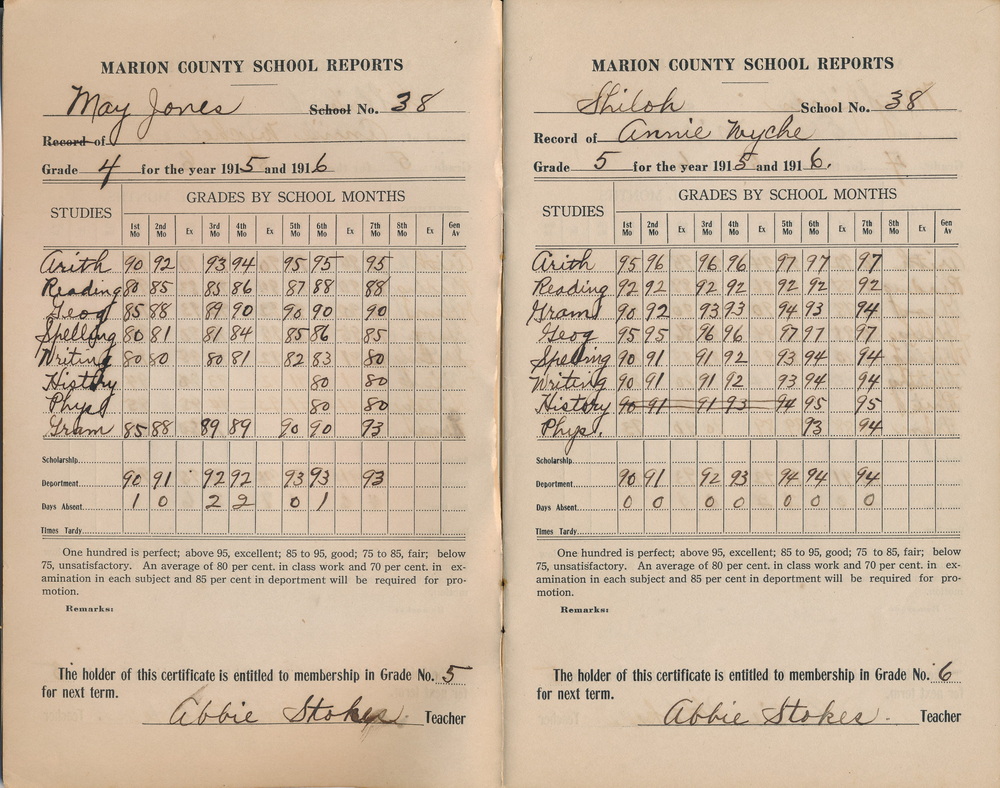 MARION COUNTY SCHOOL REPORTS
May Jones School No. 38
Record of
Grade 4 for the year 1915 and 1916
STUDIES GRADES BY SCHOOL MONTHS
1st Mo 2nd Mo Ex 3rd Mo 4th Mo Ex 5th Mo 6th Mo Ex 7th Mo 8th Mo Ex Gen Av
Arith 90 92 93 94 95 95 95
Reading 80 85 85 86 87 88 88
Geog 85 88 89 90 90 90 90
Spelling 80 81 81 84 85 86 85
Writing 80 80 80 81 82 83 80
History 80 80
Phys 80 80
Gram 85 88 89 89 90 90 93
Scholarship
Department 90 91 92 92 93 93 93
Days Absent 1 0 2 2 0 1
Times Tardy
One hundred is perfect; above 95, excellent; 85 to 95, good; 75 to 85, fair; below
75, unsatisfactory. An average of 80 per cent. in class work and 70 per cent. in ex-
amination in each subject and 85 per cent in deportment will be required for pro-
motion.
Remarks:
The holder of this certificate is entitled to membership in Grade No. 5
for next term.
Abbie Stokes Teacher
MARION COUNTY SCHOOL REPORTS
Shiloh School No. 38
Record of Annie Wyche
Grade 5 for the year 1915 and 1916.
STUDIES GRADES BY SCHOOL MONTHS
1st Mo 2nd Mo Ex 3rd Mo 4th Mo Ex 5th Mo 6th Mo Ex 7th Mo 8th Mo Ex Gen Av
Arith 95 96 96 96 97 97 97
Reading 92 92 92 92 92 92 92
Gram 90 92 93 93 94 93 94
Geog 95 95 96 96 97 97 97
Spelling 90 91 91 92 93 94 94
Writing 90 91 91 92 93 94 94
History 90 91 91 93 94 95 95
Phys. 93 94
Scholarship
Department 90 91 92 93 94 94 94
Days Absent 0 0 0 0 0 0 0
Times Tardy
One hundred is perfect; above 95, excellent; 85 to 95, good; 75 to 85, fair; below
75, unsatisfactory. An average of 80 per cent. in class work and 70 per cent. in ex-
amination in each subject and 85 per cent in deportment will be required for pro-
motion.
Remarks:
The holder of this certificate is entitled to membership in Grade No. 6
for next term.
Abbie Stokes. Teacher